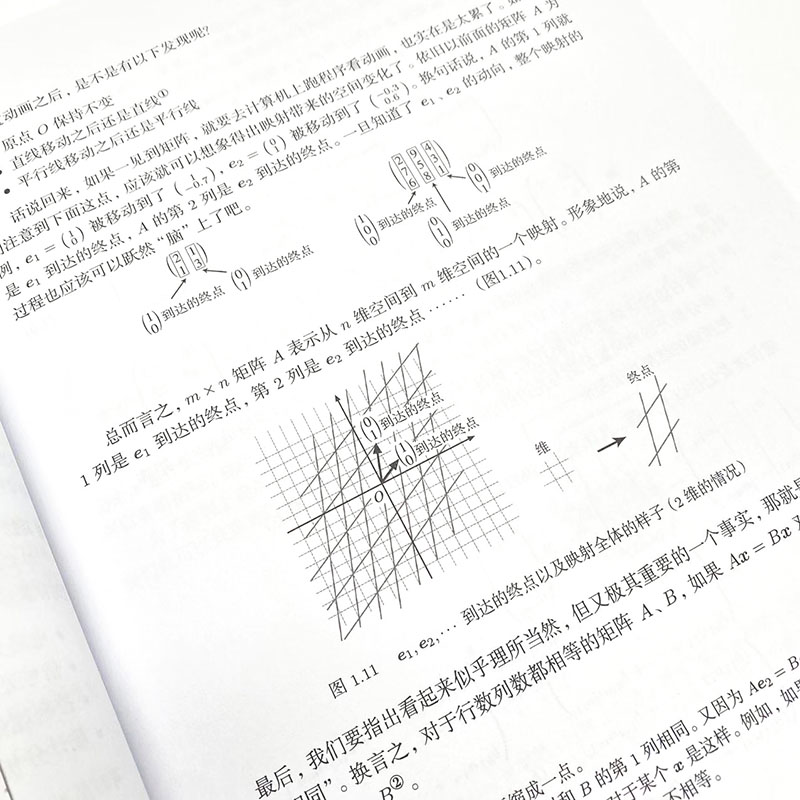 动画之后，是不是有以下发现呢？
原点 O 保持不变
• 直线移动之后还是直线①
• 平行线移动之后还是平行线
话说回来，如果一见到矩阵，就要去计算机上跑程序看动画，也实在是太累了。
注意到下面这点，应该就可以想象得出映射带来的空间变化了。依旧以前面的矩阵 A 为
例，e₁ = (1 0) 被移动到了 (1 −0.7)，e₂ = (0 1) 被移动到了 (−0.3 0.6)。换句话说，A 的第 1 列就
是 e₁ 到达的终点，A 的第 2 列是 e₂ 到达的终点。一旦知道了 e₁、e₂ 的动向，整个映射的
过程也应该可以跃然“脑”上了吧。
(2 1 1 3)
(1 0)到达的终点
(0 1)到达的终点
(2 9 4 7 5 3 6 8 1)
(1 0 0)到达的终点
(0 1 0)到达的终点
(0 0 1)到达的终点
总而言之，m × n 矩阵 A 表示从 n 维空间到 m 维空间的一个映射。形象地说，A 的第
1 列是 e₁ 到达的终点，第 2 列是 e₂ 到达的终点……（图1.11）。
(0 1)到达的终点
(1 0)到达的终点
O
维
终点
图 1.11 e₁,e₂,⋯ 到达的终点以及映射全体的样子（2 维的情况）
最后，我们要指出看起来似乎理所当然，但又极其重要的一个事实，那就是
同”。换言之，对于行数列数都相等的矩阵 A、B，如果 Ax = Bx 对
B②。
缩成一点。
和 B 的第 1 列相同。又因为 Ae₂ = B
对于某个 x 是这样。例如，如
不相等。